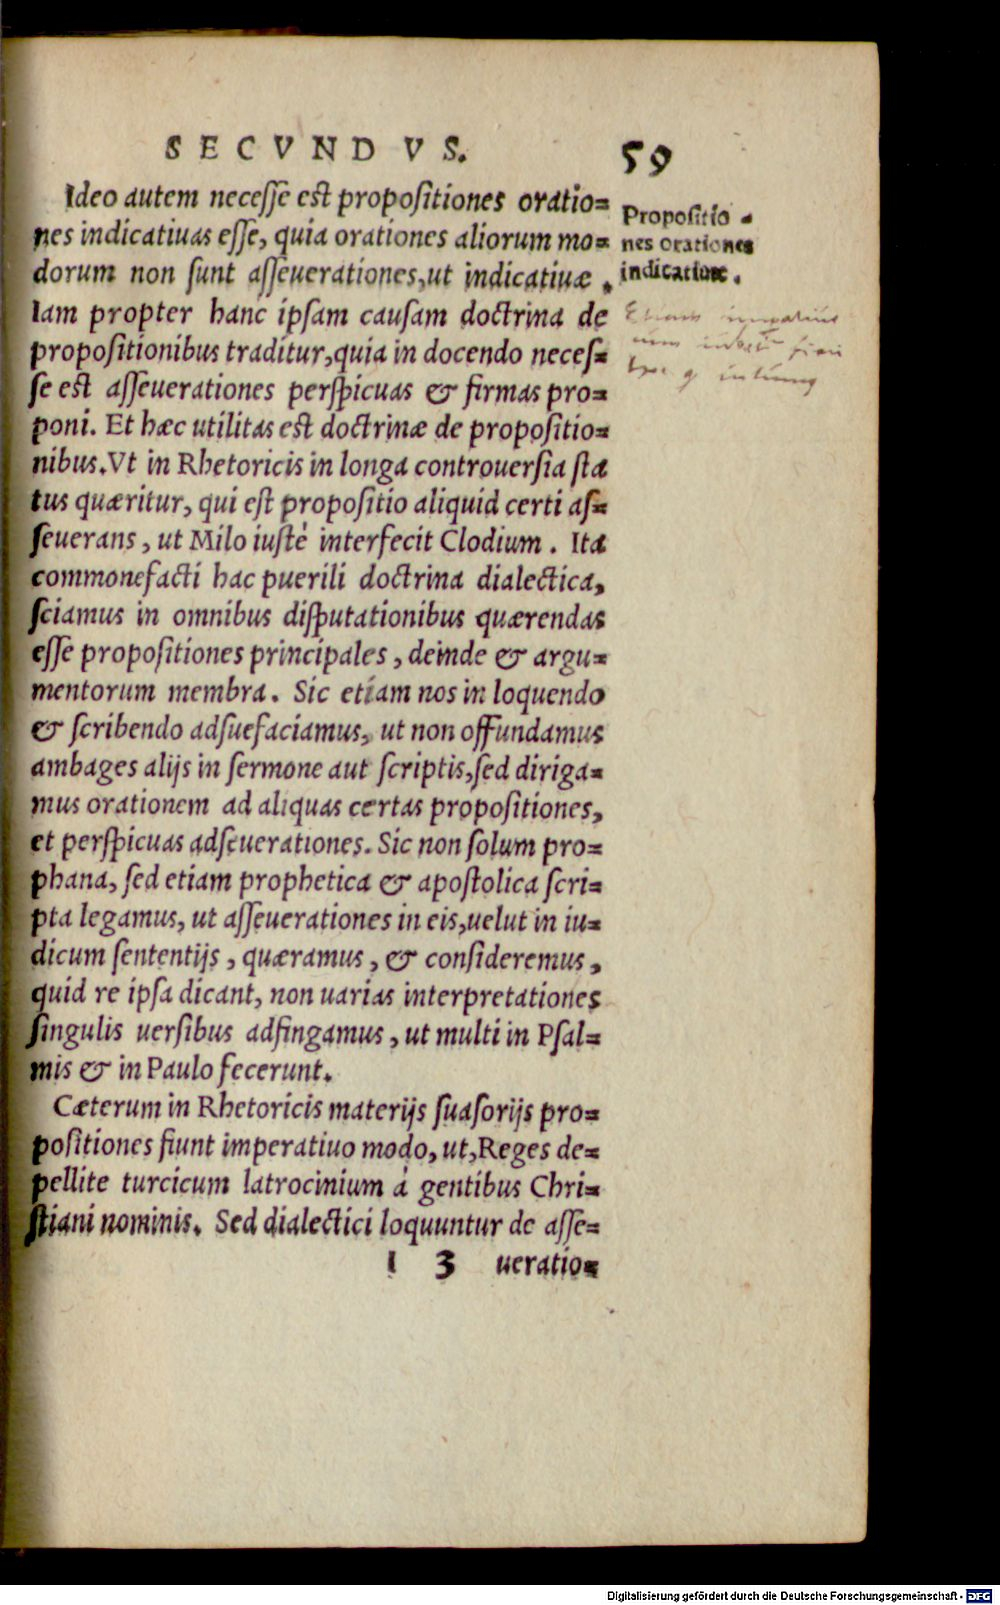 SECVNDVS. 59
Ideo autem necesse est propositiones oratio=
nes indicatiuas esse, quia orationes aliorum mo=
dorum non sunt asseuerationes,ut indicatiuæ.
Iam propter hanc ipsam causam doctrina de
propositionibus traditur,quia in docendo neces=
se est asseuerationes perspicuas & firmas pro=
poni. Et hæc utilitas est doctrinæ de propositio=
nibus.Vt in Rhetoricis in longa controuersia sta
tus quæritur, qui est propositio aliquid certi as=
seuerans, ut Milo iustè interfecit Clodium. Ita
commonefacti hac puerili doctrina dialectica,
sciamus in omnibus disputationibus quærendas
esse propositiones principales, deinde & argu=
mentorum membra. Sic etiam nos in loquendo
& scribendo adsuefaciamus, ut non offundamus
ambages alijs in sermone aut scriptis,sed diriga=
mus orationem ad aliquas certas propositiones,
et perspicuas adseuerationes. Sic non solum pro=
phana, sed etiam prophetica & apostolica scri=
pta legamus, ut asseuerationes in eis,uelut in iu=
dicum sententijs, quæramus, & consideremus,
quid re ipsa dicant, non uarias interpretationes
singulis uersibus adfingamus, ut multi in Psal=
mis & in Paulo fecerunt.
Cæterum in Rhetoricis materijs suasorijs pro=
positiones fiunt imperatiuo modo, ut,Reges de=
pellite turcicum latrocinium à gentibus Chri=
stiani nominis. Sed dialectici loquuntur de asse=
l 3 ueratio=
Propositio=
nes orationes
indicatiuæ.
Etiam
Digitalisierung gefördert durch die Deutsche Forschungsgemeinschaft - DFG